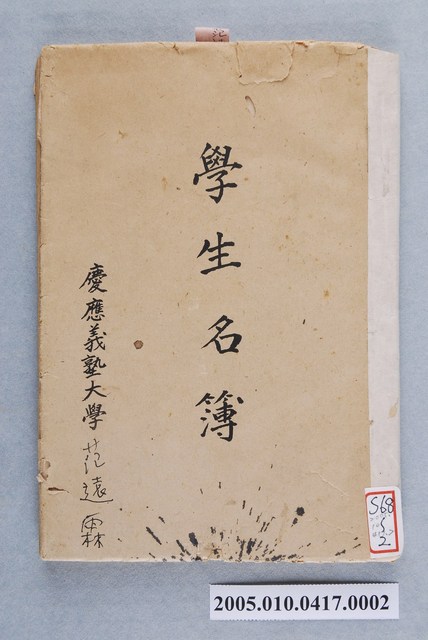 學生名簿
慶應義塾大學 范遠霖
S68
5
2
2005.010.0417.0002